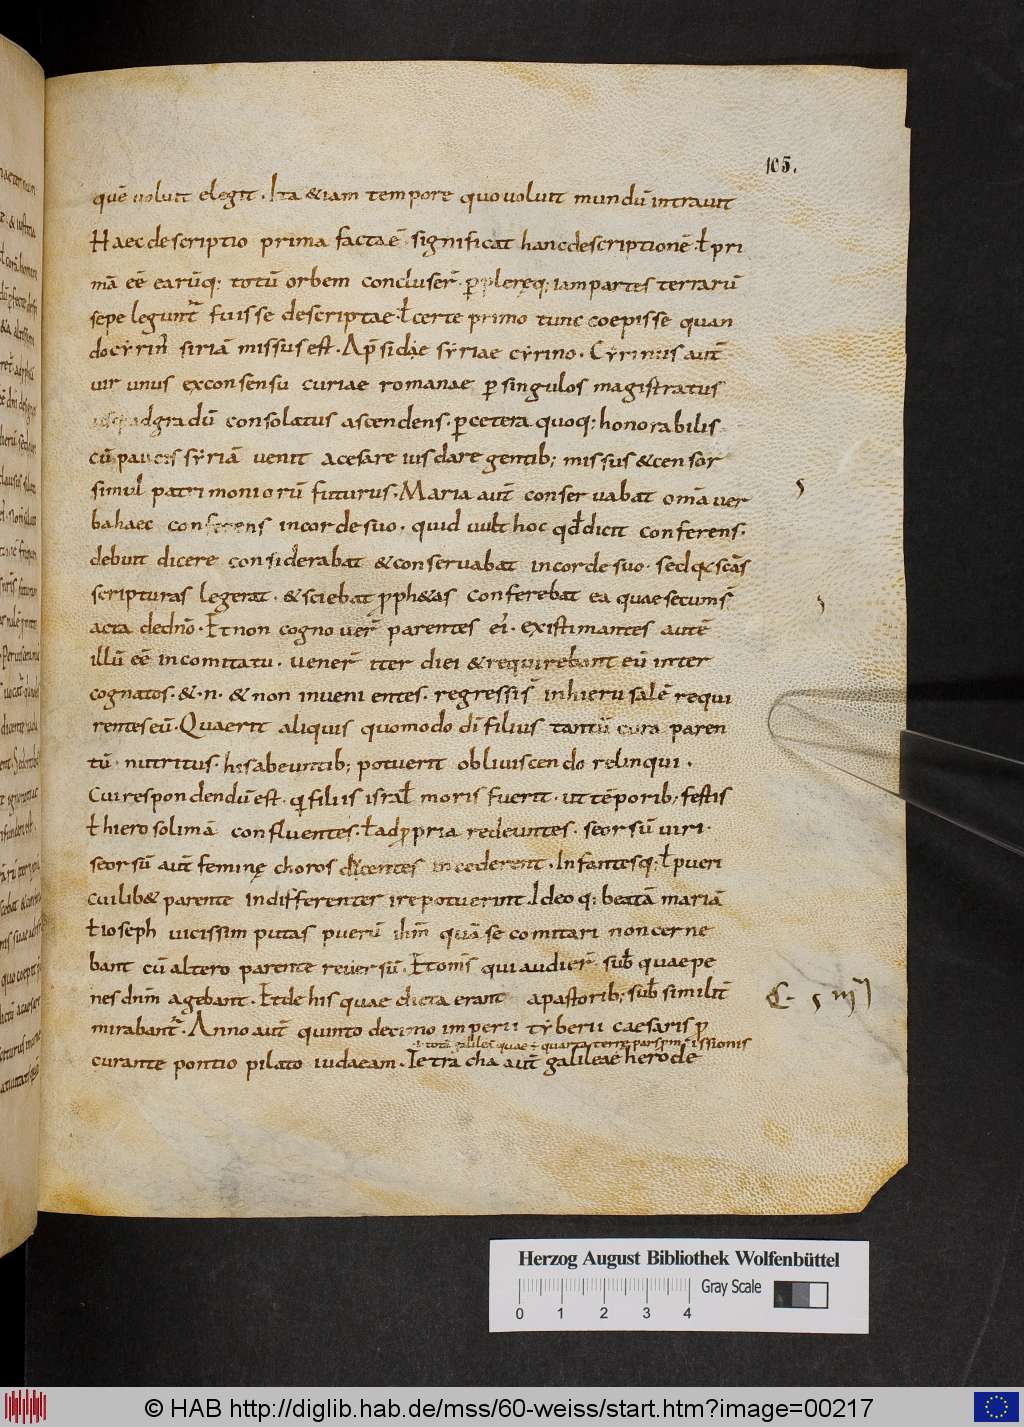 105.
quē uoluit elegit. Ita & iam tempore quo uoluit mundū intrauit
Haec descriptio prima facta ē. significat hanc descriptionē. ƚ pri
mā eē earūq; totū orbem concluser̄. ꝑ pleręq; iam partes terrarū
sepe legunt᷑ fuisse descriptae. ƚ certe primo tunc coepisse quan
do cẏrin᷒ siriā missus est. Ap̄side sẏriae cẏrino. Cẏrinus aut̄
uir unus ex consensu curiae romanae ꝑ singulos magistratus
ad gradū consolatus ascendens. ꝑ cetera quoq; honorabilis
cū paucis sẏriā uenit a cesare iusdare gentib; missus & censor
simul patrimoniorū futurus. Maria aut̄ conseruabat om̄a uer
ba haec conferens in corde suo. quid uult hoc qđ dicit conferens.
debuit dicere considerabat & conseruabat in corde suo. sed quia scās
scripturas legerat. & sciebat ꝓph&as conferebat ea quae secum
acta de dn̄o. Et non cognouer̄ parentes ei᷒. existimantes autē
illū eē in comitatu. uener̄ iter diei & requirebant eū inter
cognatos. &. n. & non inuenientes. regressi s̄ in hierusalē requi
rentes eū. Quaerit aliquis quomodo dī filius tantū cura paren
tū nutritus. his abeuntib; potuerit obliuiscendo relinqui.
Cui respondendū est. qđ filiis isrƚ moris fuerit. ut tēporib; festis
ƚ hierosolimā confluentes. ƚ ad ꝓpria redeuntes. seorsū uiri.
seorsū aut̄ feminę choros ducentes incederent. Infantesq; ƚ pueri
cuilib& parente indifferenter ire potuerint. Ideoq; beatā mariā
ƚ ioseph uicissim putas puerū ihm̄ quā se comitari non cerne
bant cū altero parente reuersū. Et om̄s qui audier̄. sub quae pe
nes dn̄m agebant. Et de his quae dicta erant a pastorib; sub similit̄
C. s IIII
mirabant᷑. Anno aut̄ quinto decimo imperii tẏberii caesaris ꝓ
.i. totā galileę quae ÷ quarta terrę pars ꝑmissionis
curante pontio pilato iudaeam. Tetrarcha aut̄ galileae herode
Herzog August Bibliothek Wolfenbüttel
Gray Scale
0 1 2 3 4
© HAB http://diglib.hab.de/mss/60-weiss/start.htm?image=00217